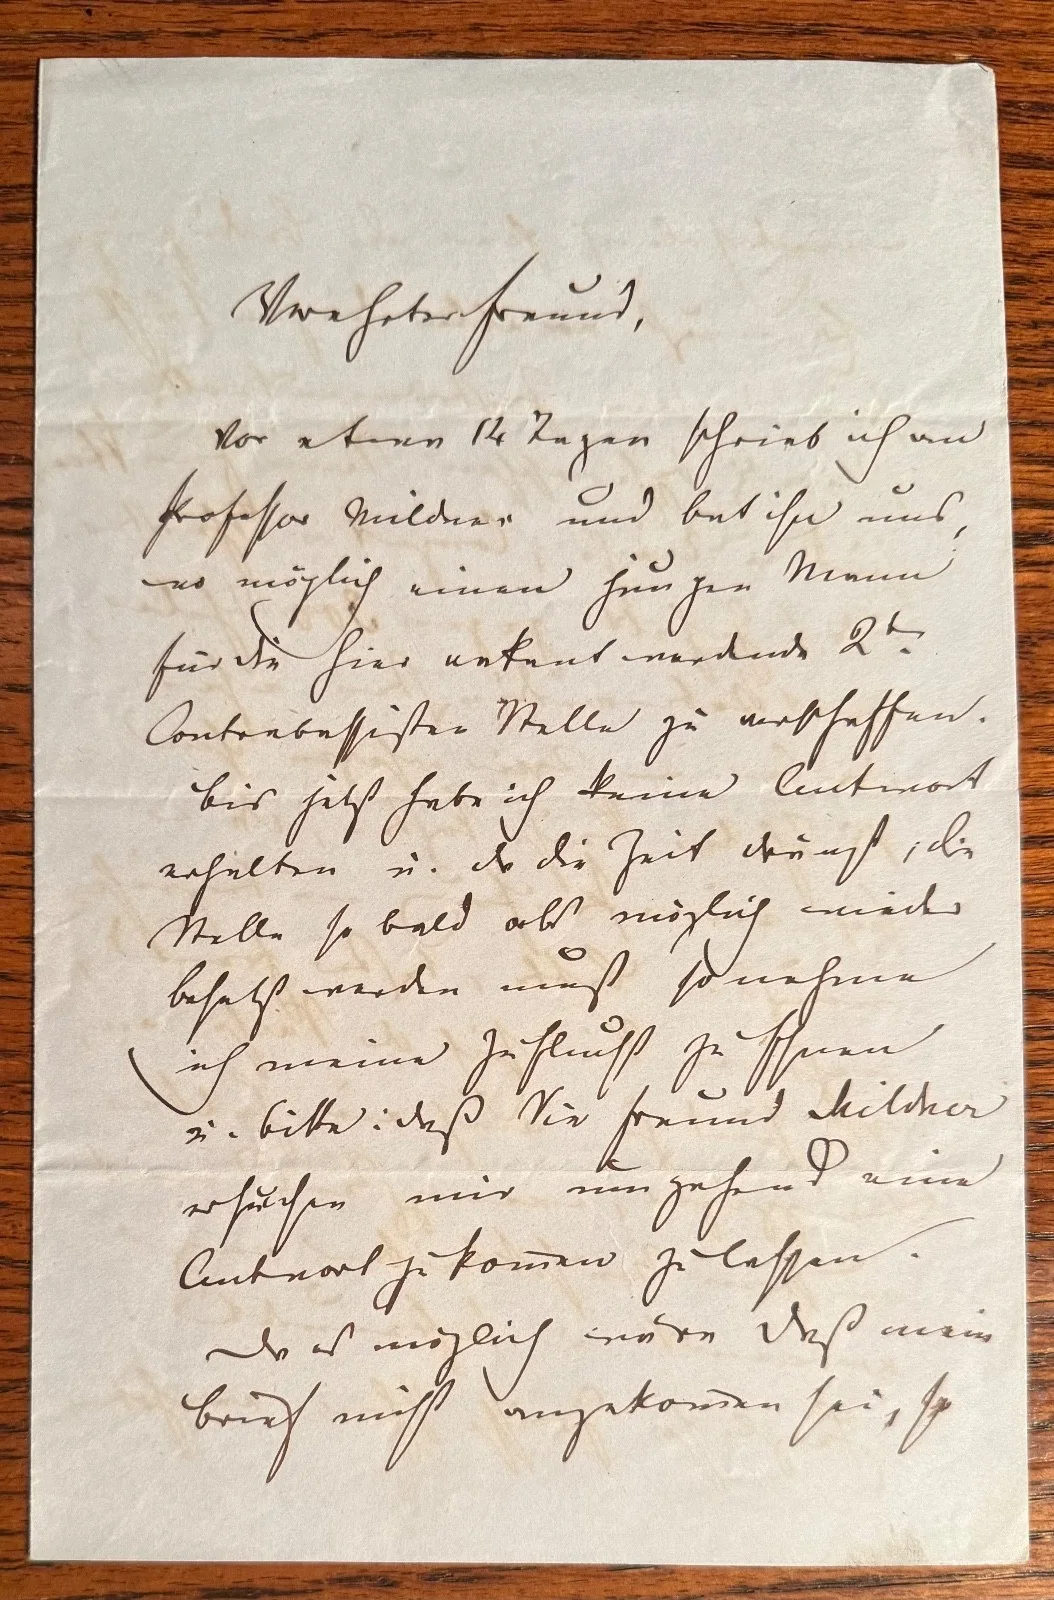 Verehrter Freund,
Vor etwa 14 Tagen schrieb ich an
Professor Mildner und bat ihn uns,
wo möglich einen jungen Mann
für die hier vakant werdende 2te
Contrabassisten Stelle zu verschaffen.
Bis jetzt habe ich keine Antwort
erhalten u. da die Zeit drängt, die
Stelle so bald als möglich wieder
besetzt werden muß so nehme
ich meine Zuflucht zu Ihnen
u. bitte: daß Sie Freund Mildner
ersuchen mir umgehend eine
Antwort zukom̅en zu lassen.
Da es möglich wäre daß mein
Brief nicht angekom̅en sei, so